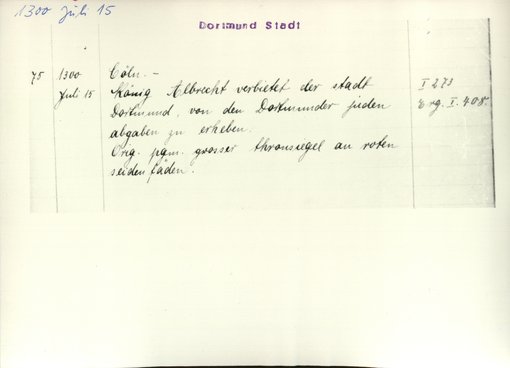 1300 Juli 15
Dortmund Stadt
75 1300 Cöln. -
Juli 15 König Albrecht verbietet der stadt I 273
Dortmund, von den Dortmunder juden Erg. I. 408.
abgaben zu erheben.
Orig. pgm. grosser thronsiegel an roten
seidenfäden.